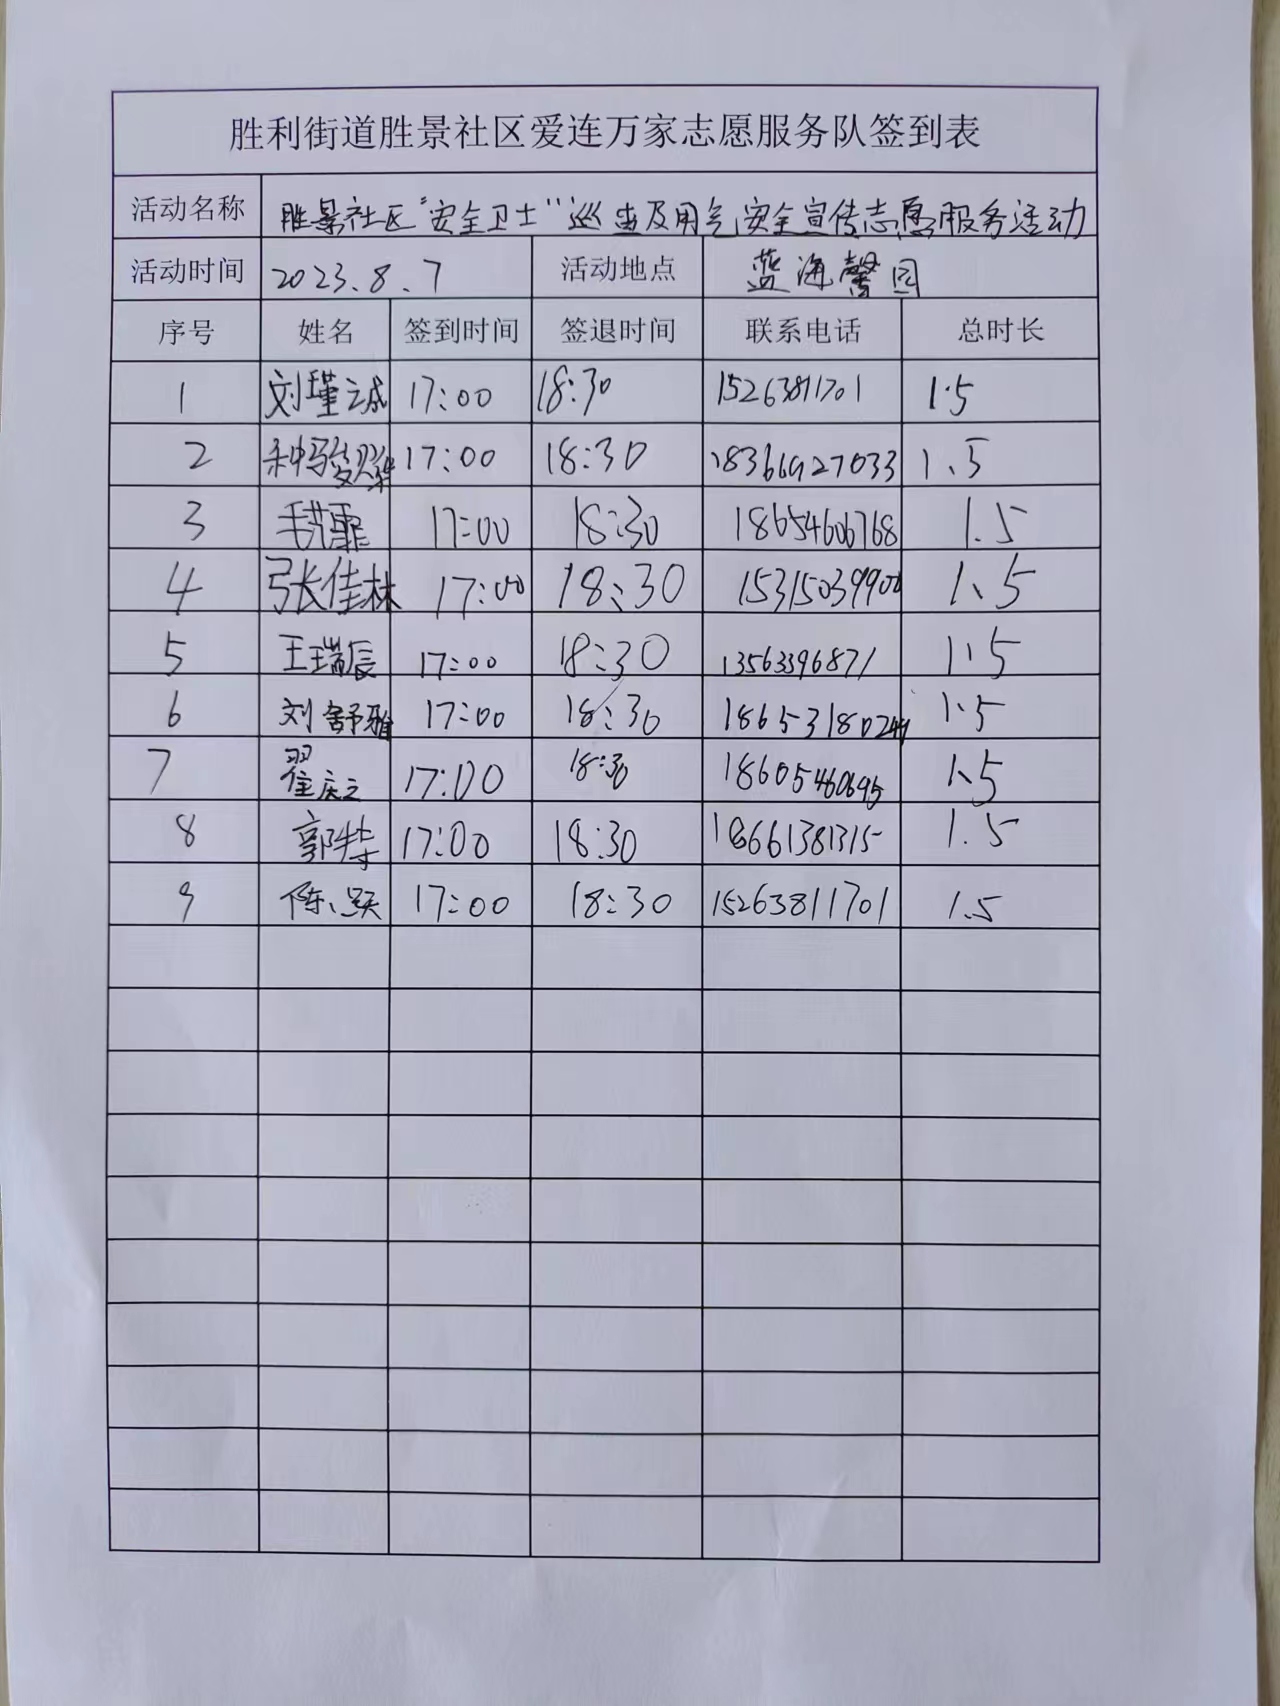 胜利街道胜景社区爱连万家志愿服务队签到表
活动名称 胜景社区“安全卫士”巡查及用气安全宣传志愿服务活动
活动时间 2023.8.7 活动地点 蓝海馨园
序号 姓名 签到时间 签退时间 联系电话 总时长
1 刘瑾诚 17:00 18:30 15263811701 1.5
2 17:00 18:30 18366927033 1.5
3 毛芃霏 17:00 18:30 18654606768 1.5
4 张佳林 17:00 18:30 1.5
5 王瑞辰 17:00 18:30 13563396871 1.5
6 刘舒雅 17:00 18:30 1.5
7 翟庆之 17:00 18:30 18605460695 1.5
8 郭 17:00 18:30 18661381315 1.5
9 陈 17:00 18:30 15263811701 1.5